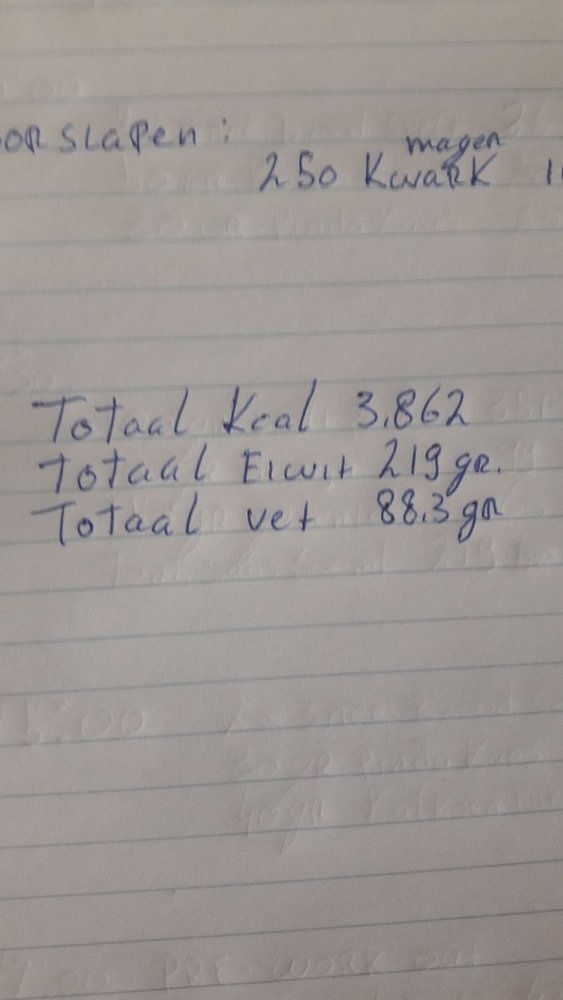 oor slapen :
magen
250 Kwark
Totaal Kcal 3.862
Totaal Eiwit 219 gr.
Totaal vet 88.3 gr